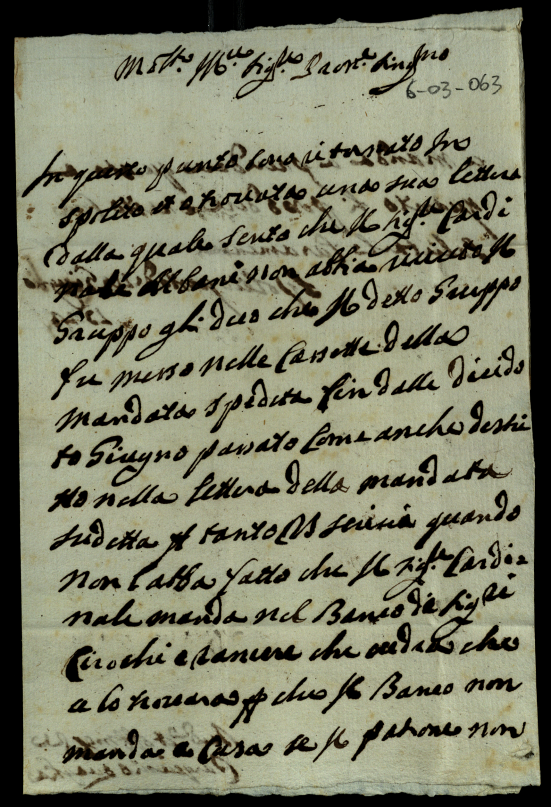 Molto Ill.re Sig.re Padre Sing.mo
6-03-063
In questo punto sono ritornato in
spoleto et o trovata una sua lettera
dalla quale sento che il sig.re Cardi
nale Albani non abbia riceuto il
Gruppo gli dico che il detto Gruppo
fu messo nelle Cassette della
mandata spedita sin dalle dicido
to Giugno passato come anche descri
tto nella lettera della mandata
sudetta p tanto VS scrivia quando
non l abba fatto che il sig.re Cardi=
nale manda nel Banco de sig.ri
Cirochi e che vedra che
e lo trovara p che il Banco non
manda a Casa se il patrone non